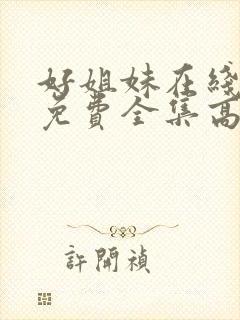 好姐妹在綫
免費全集高
許開禎